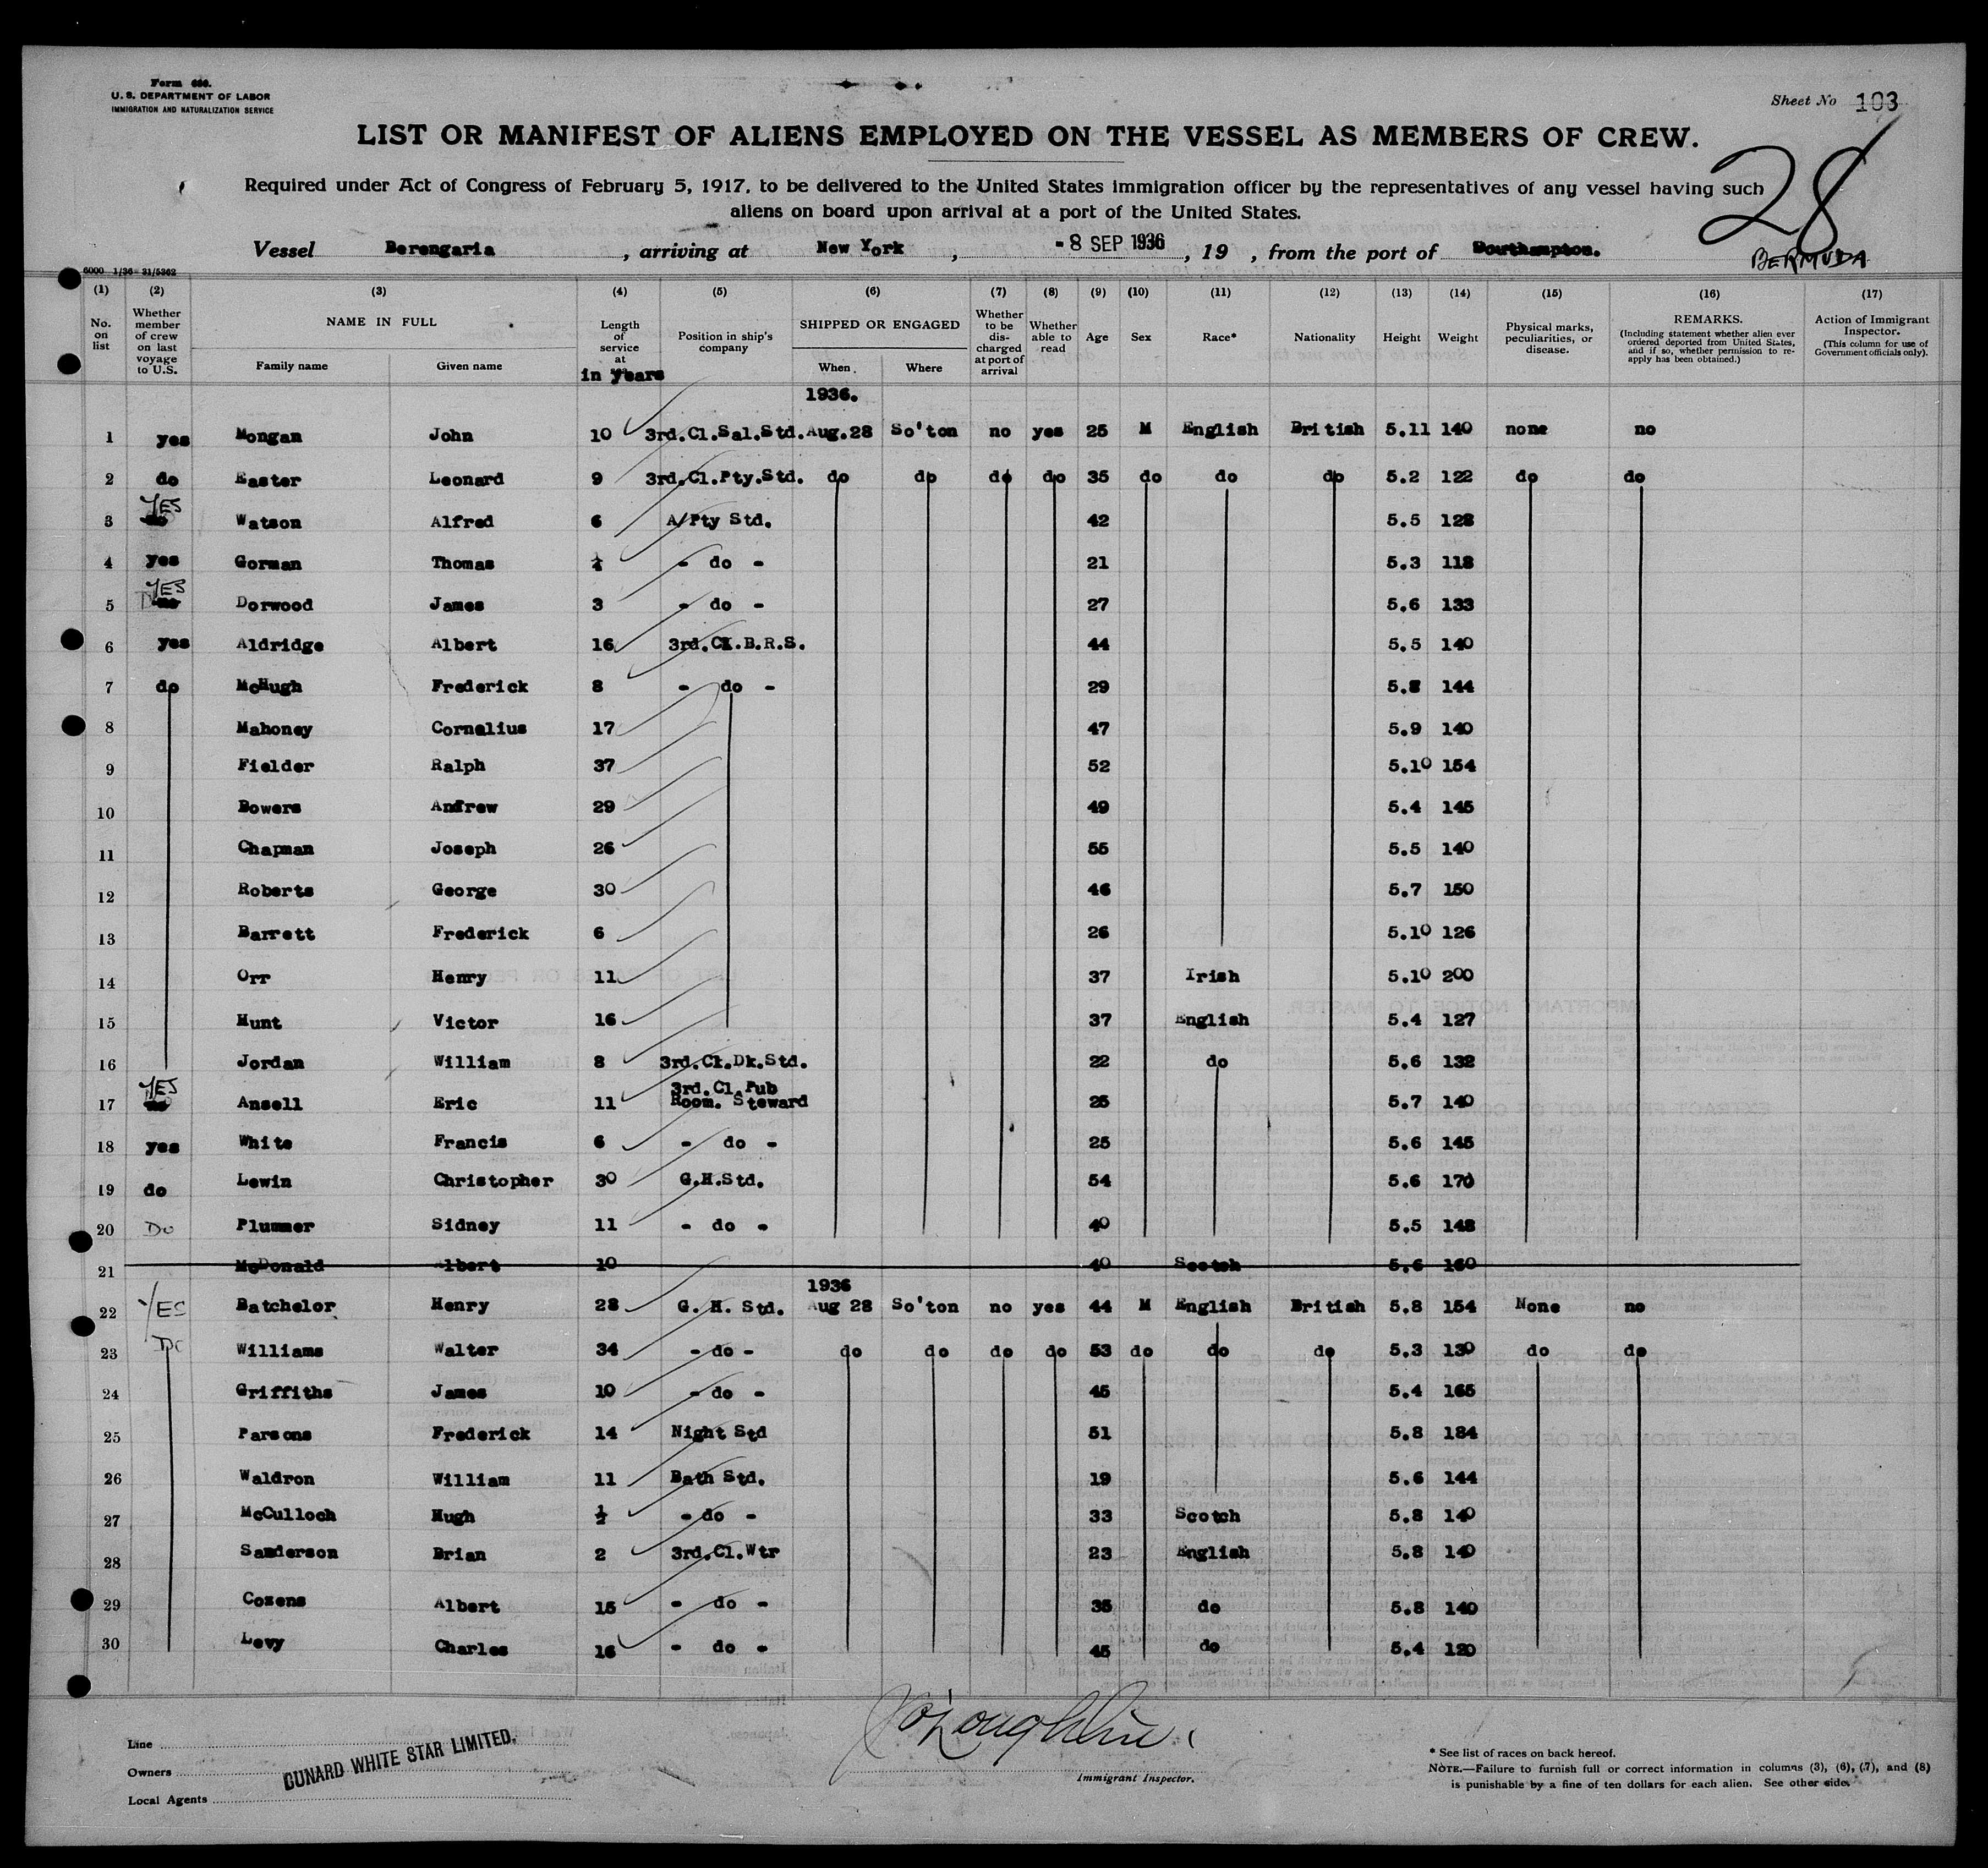 Form 680.
U. S. DEPARTMENT OF LABOR
IMMIGRATION AND NATURALIZATION SERVICE
Sheet No 103
LIST OR MANIFEST OF ALIENS EMPLOYED ON THE VESSEL AS MEMBERS OF CREW.
28
Required under Act of Congress of February 5, 1917, to be delivered to the United States immigration officer by the representatives of any vessel having such
aliens on board upon arrival at a port of the United States.
Vessel Berengaria, arriving at New York, -8 SEP 1936, 19 , from the port of Southampton.
BERMUDA
6000 1/36-31/5362
(1) (2) (3) (4) (5) (6) (7) (8) (9) (10) (11) (12) (13) (14) (15) (16) (17)
No. on list
Whether member of crew on last voyage to U.S.
NAME IN FULL
Family name Given name
Length of service at in years
Position in ship's company
SHIPPED OR ENGAGED
When. Where
Whether to be discharged at port of arrival
Whether able to read
Age Sex Race* Nationality Height Weight
Physical marks, peculiarities, or disease.
REMARKS.
(Including statement whether alien ever ordered deported from United States, and if so, whether permission to re-apply has been obtained.)
Action of Immigrant Inspector.
(This column for use of Government officials only).
1936.
1 yes Mongan John 10 3rd.Cl.Sal.Std. Aug.28 So'ton no yes 25 M English British 5.11 140 none no
2 do Easter Leonard 9 3rd.Cl.Pty.Std. do do do do 35 do do do 5.2 122 do do
3 YES Watson Alfred 6 A/Pty Std. 42 5.5 128
4 yes Gorman Thomas ¼ - do - 21 5.3 118
5 YES Dorwood James 3 - do - 27 5.6 133
6 yes Aldridge Albert 16 3rd.Cl.B.R.S. 44 5.5 140
7 do McHugh Frederick 8 - do - 29 5.8 144
8 Mahoney Cornelius 17 47 5.9 140
9 Fielder Ralph 37 52 5.10 154
10 Bowers Andrew 29 49 5.4 145
11 Chapman Joseph 26 55 5.5 140
12 Roberts George 30 46 5.7 150
13 Barrett Frederick 6 26 5.10 126
14 Orr Henry 11 37 Irish 5.10 200
15 Hunt Victor 16 37 English 5.4 127
16 Jordan William 8 3rd.Cl.Dk.Std. 22 do 5.6 132
17 YES Ansell Eric 11 3rd.Cl.Pub Room. Steward 25 5.7 140
18 yes White Francis 6 - do - 25 5.6 145
19 do Lewin Christopher 30 G.H.Std. 54 5.6 170
20 Do Plummer Sidney 11 - do - 40 5.5 148
21 McDonald Albert 10 40 Scotch 5.6 160
1936
22 YES Batchelor Henry 28 G. H. Std. Aug 28 So'ton no yes 44 M English British 5.8 154 None no
23 Do Williams Walter 34 - do - do do do do 53 do do do 5.3 130 do do
24 Griffiths James 10 - do - 45 5.4 165
25 Parsons Frederick 14 Night Std 51 5.8 184
26 Waldron William 11 Bath Std. 19 5.6 144
27 McCulloch Hugh ½ - do - 33 Scotch 5.8 140
28 Sanderson Brian 2 3rd.Cl.Wtr 23 English 5.8 140
29 Cozens Albert 15 - do - 35 do 5.8 140
30 Levy Charles 16 - do - 45 do 5.4 120
Line
Owners CUNARD WHITE STAR LIMITED.
Local Agents
Immigrant Inspector.
* See list of races on back hereof.
NOTE.—Failure to furnish full or correct information in columns (3), (6), (7), and (8)
is punishable by a fine of ten dollars for each alien. See other side.